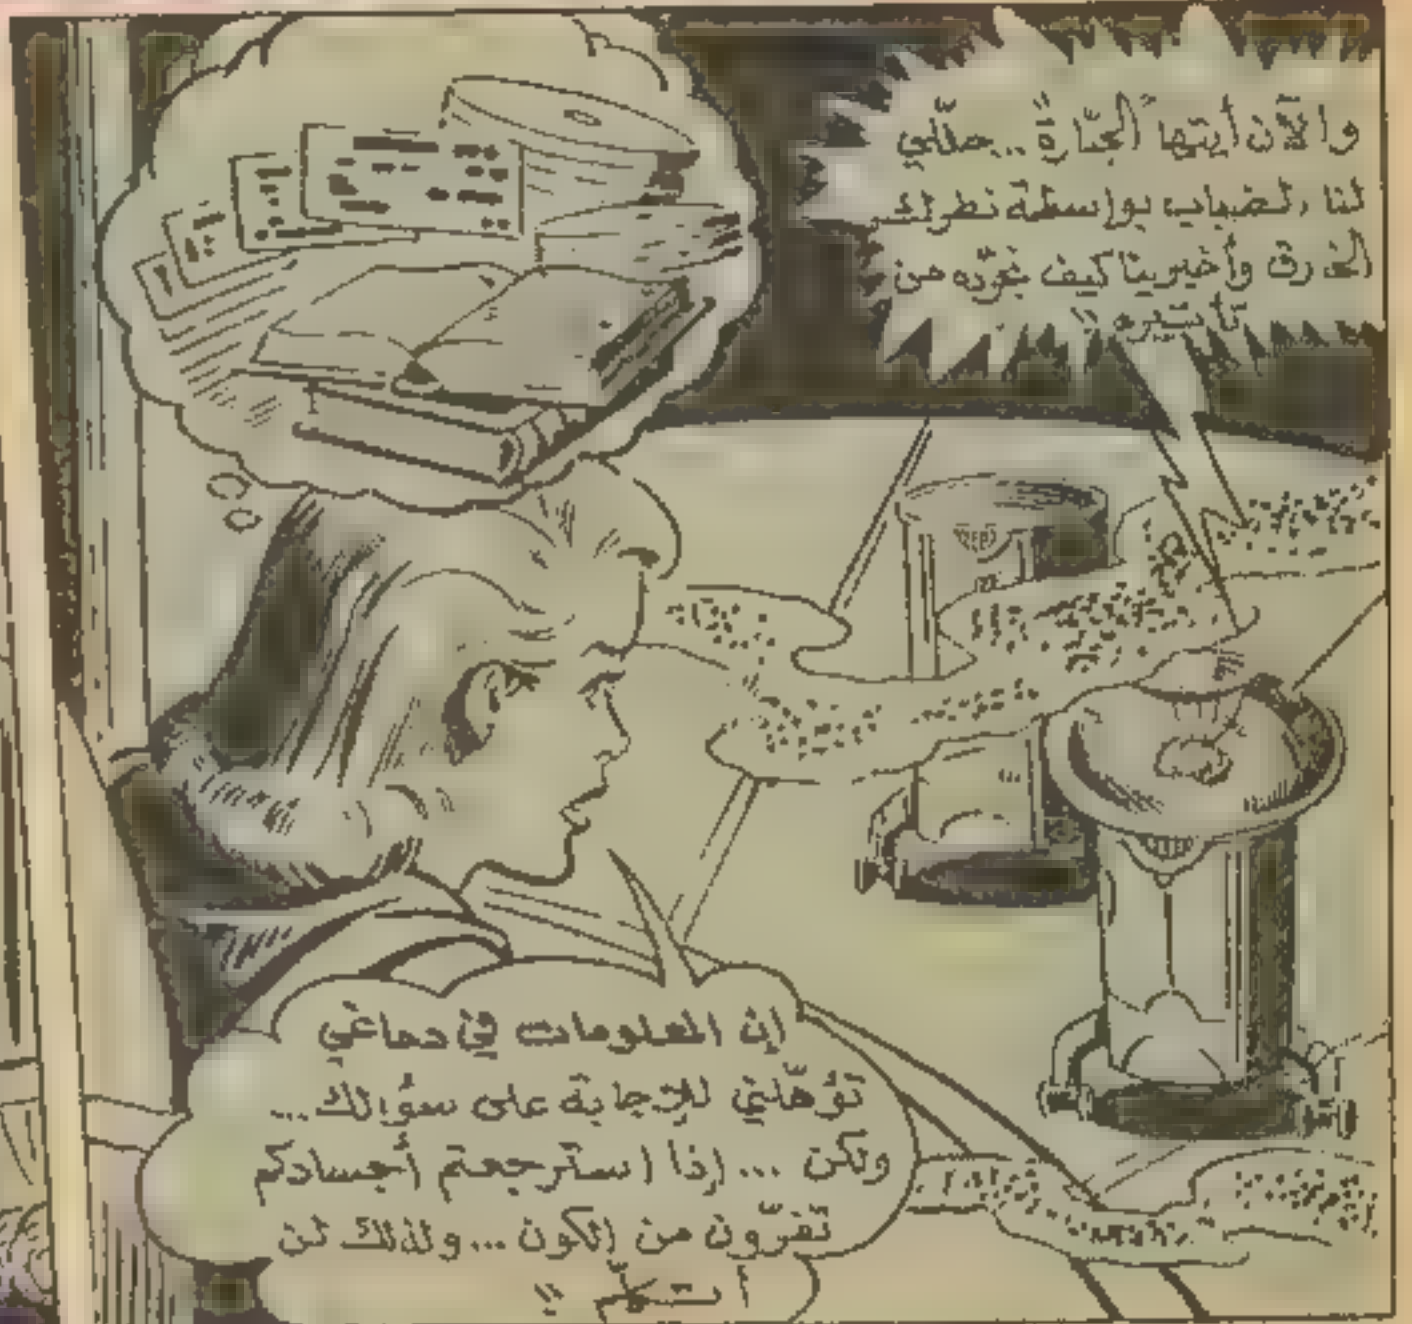 والآن أيتها الجبّارة... حلّلي
لنا الضباب بواسطة نظرك
الخارق وأخبرينا كيف نجرّده من
تأثيره "
إن المعلومات في دماغي
تؤهّلني للإجابة على سؤالك...
ولكن ... إذا استرجعتم أجسادكم
تفرّون من الكون ... ولذلك لن
أتكلّم "